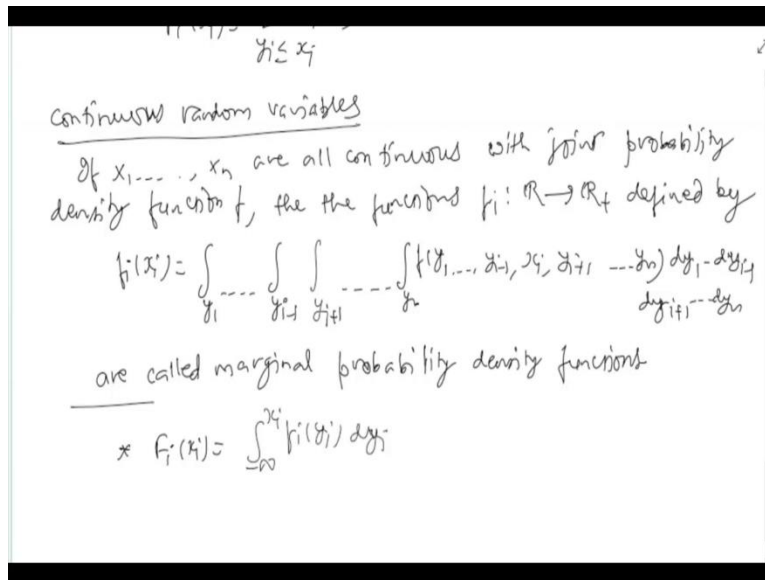 y_i ≤ x_i
continuous random variables
If x_1....., x_n are all continuous with joint probability
density function f, the the functions f_i : ℝ → ℝ_+ defined by
f_i(x_i) = ∫_{y_1} .... ∫_{y_{i-1}} ∫_{y_{i+1}} ..... ∫_{y_n} f(y_1, ..., y_{i-1}, x_i, y_{i+1} ... y_n) dy_1 - dy_{i-1}
dy_{i+1} --- dy_n
are called marginal probability density functions
* F_i(x_i) = ∫_{-∞}^{x_i} f_i(y_i) dy_i